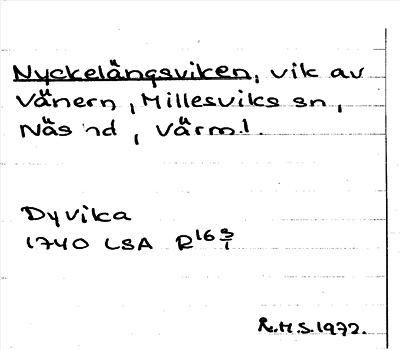 Nyckelängsviken, vik av
Vänern, Millesviks sn,
Näs hd, Värml.
Dyvika
1740 LSA R16 5/1
R.H.S. 1972.